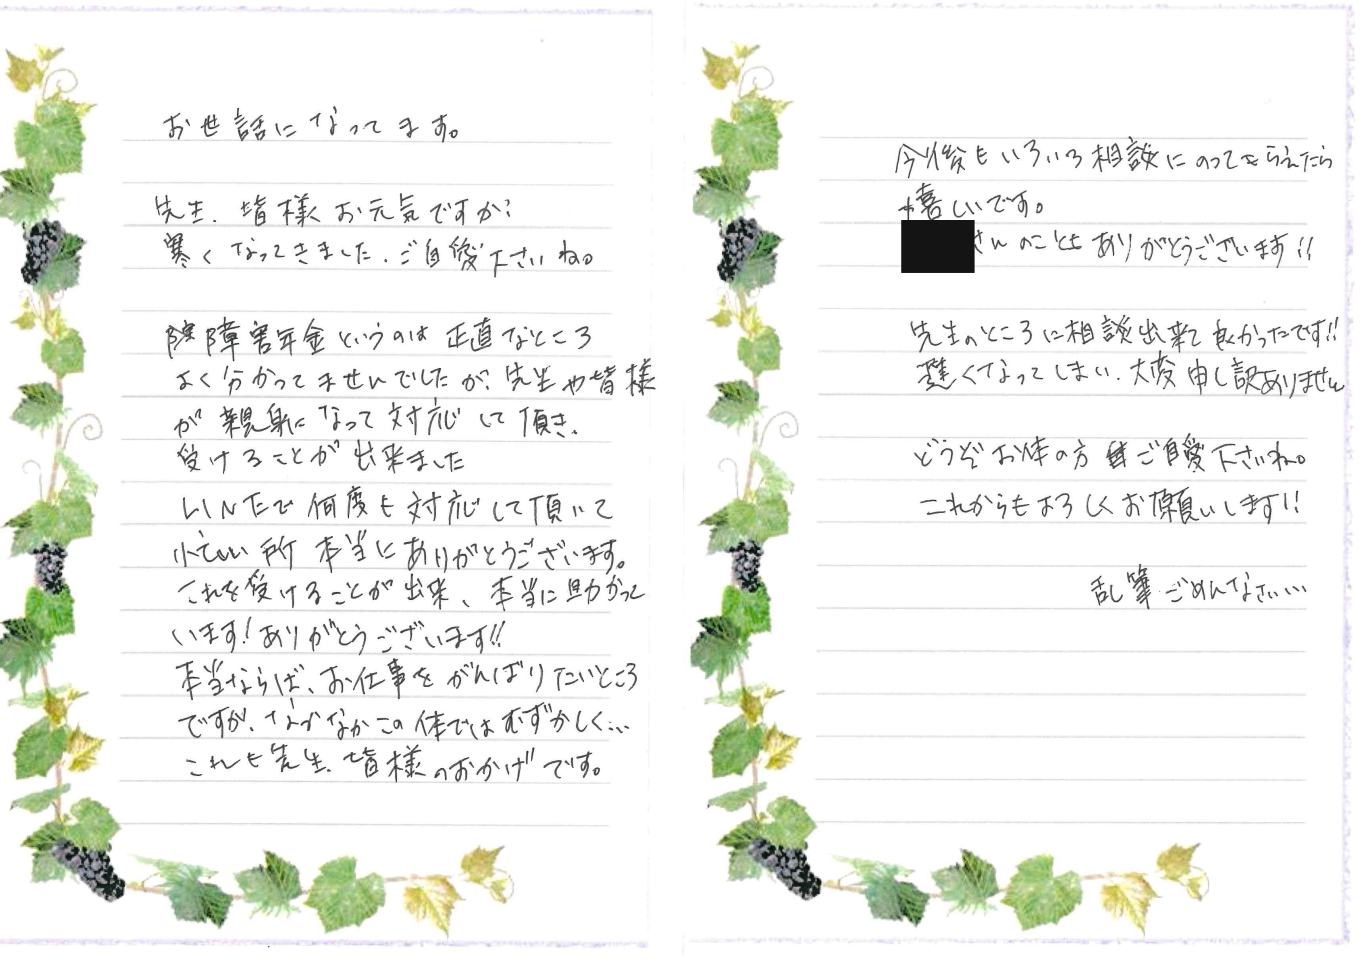 お世話になってます。
先生、皆様お元気ですか?
寒くなってきました、ご自愛下さいね。
障害年金というのは正直なところ
よく分かってませんでしたが、先生や皆様
が親身になって対応して頂き、
受けることが出来ました
何度も対応して頂いて
所本当にありがとうございます。
これを受けることが出来、本当に助かって
います!ありがとうございます!!
本当ならば、お仕事をがんばりたいところ
ですが、なかなかこの体ではむずかしく…
これも先生、皆様のおかげです。
今後もいろいろ相談にのってもらえたら
嬉しいです。
さんのこともありがとうございます!!
先生のところに相談出来て良かったです!!
遅くなってしまい、大変申し訳ありません
どうぞお体の方ご自愛下さいね。
これからもよろしくお願いします!!
乱筆ごめんなさい…